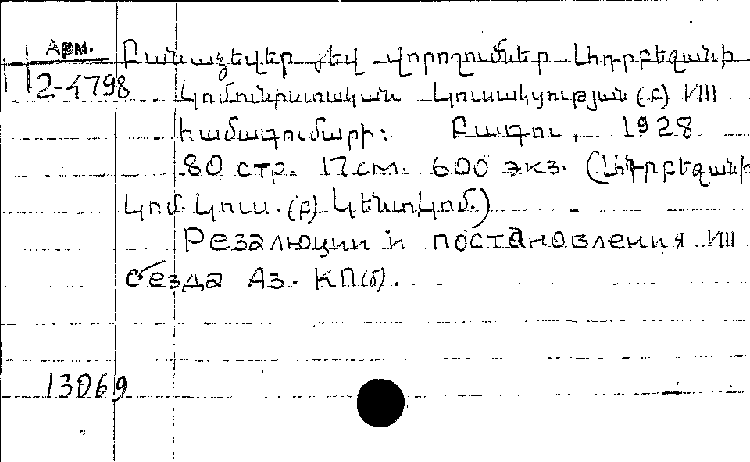 Арм.
2-4798
Բանաձեվեր յեվ վորոշումներ Ադրբեջանի
կոմունիստական կուսակցության (բ) VIII
համագումարի: Բագու, 1928
80 стр. 17 см. 600 экз. (Ադրբեջանի
կոմ. կուս. (բ) կենտկոմ.)
Резалюции и постановления VIII
сезда Аз. КП(б).
13069